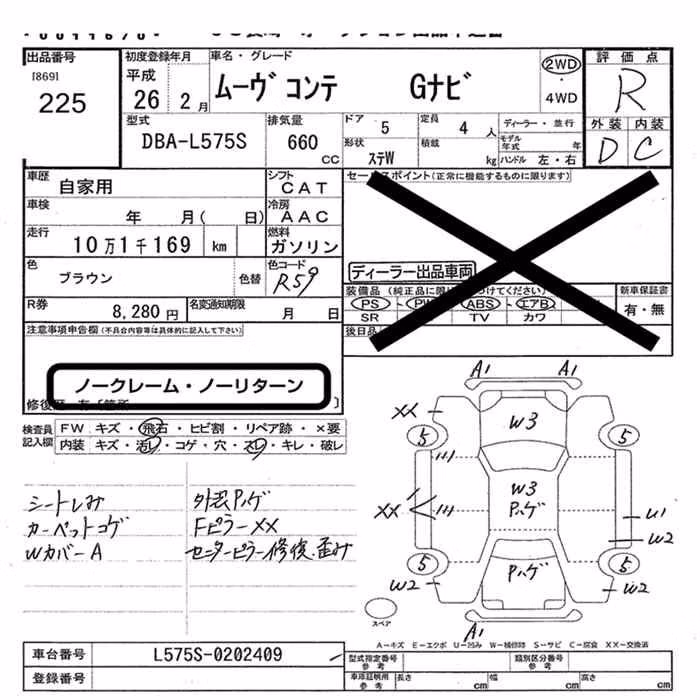 出品番号
18691
225
初度登録年月
平成
26 2月
車名・グレード
ムーヴ コンテ Gナビ
2WD
・
4WD
評価点
R
外装 内装
D C
型式
DBA-L575S
排気量
660
CC
ドア
5
定員
4 人
形状
ステW
積載
kg
ディーラー・並行
モデル年式 年
ハンドル 左・右
車歴
自家用
シフト
CAT
車検
年 月( 日)
冷房
AAC
走行
10万1千169 km
燃料
ガソリン
色
ブラウン
色替
色コード
R59
R券
8,280円
名変通知期限
月 日
セールスポイント(正常に機能するものに限ります)
ディーラー出品車両
装備品(純正品に限
つけてください)
PS・PW・ABS・エアB
SR TV カワ
新車保証書
有・無
後日品
注意事項申告欄(不具合内容等は具体的に記入して下さい)
ノークレーム・ノーリターン
修復歴
検査員
記入欄
FW キズ・飛石・ヒビ割・リペア跡・×要
内装 キズ・汚レ・コゲ・穴・スレ・キレ・破レ
シートしみ
カーペットコゲ
WカバーA
外装Pハゲ
FピラーXX
センターピラー修復歪み
A1 A1
XX
W3
5 5
W3
Pハゲ
XX
U1
W2
5 5
Pハゲ
W2
W2
A1
スペア
A-キズ E-エクボ U-凹み W-補修跡 S-サビ C-腐食 XX-交換済
車台番号
L575S-0202409
登録番号
型式指定番号
参考
類別区分番号
参考
車庫証明用
参考
長さ cm
幅 cm
高さ cm